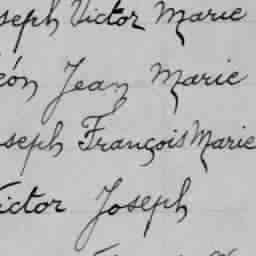 seph Victor Marie
éon Jean Marie
seph François Marie
ictor Joseph